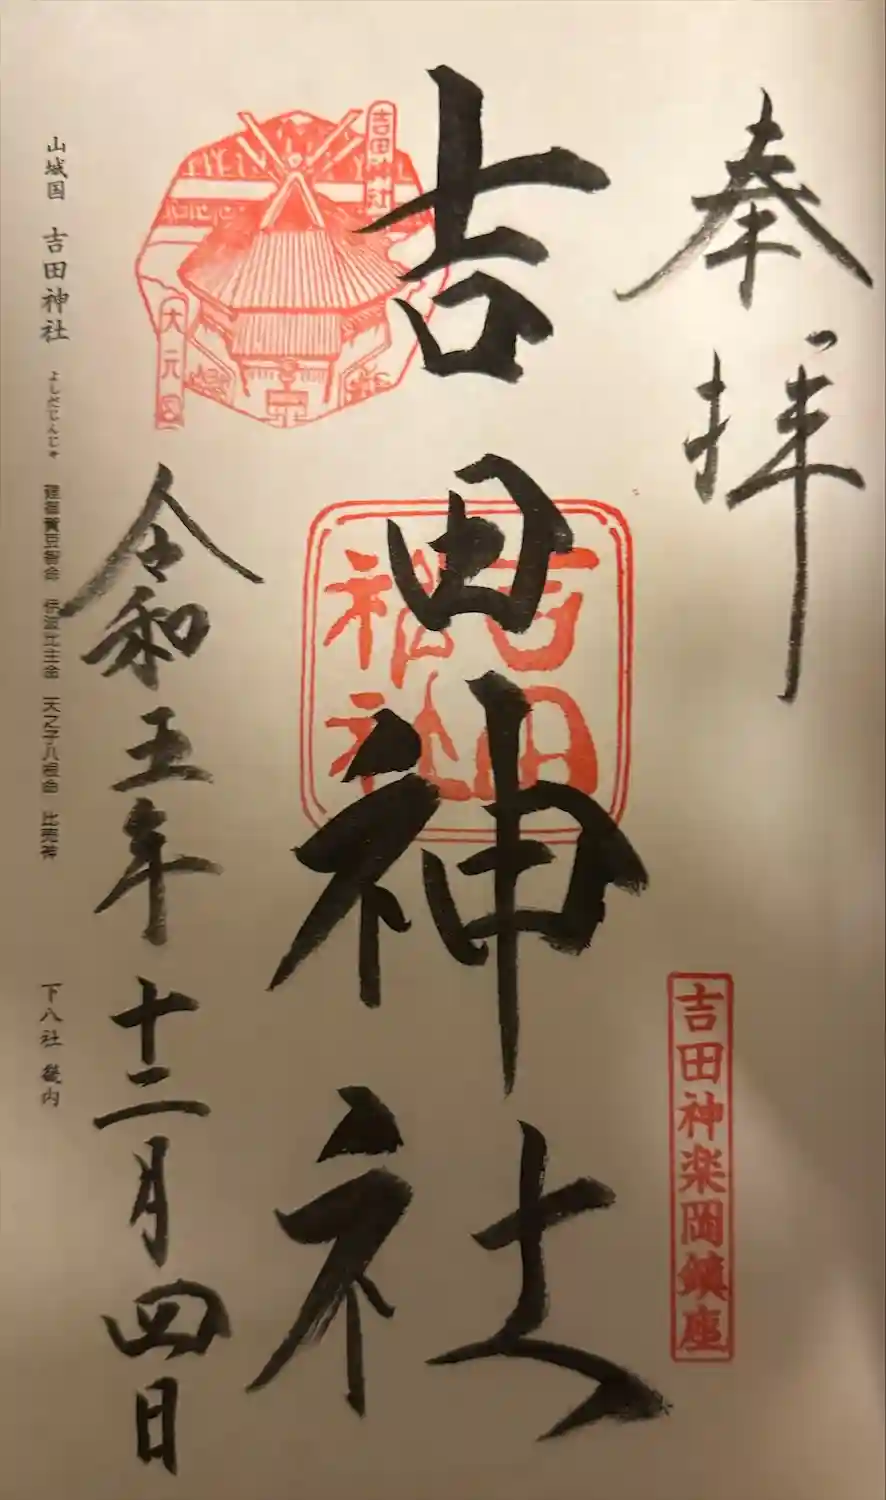 奉拝
吉田神楽岡鎮座
吉田神社
吉田神社
吉田神社
大元宮
令和五年十二月四日
山城国 吉田神社 よしだじんじゃ 建御賀豆智命 伊波比主命 天之子八根命 比売神 下八社 畿内